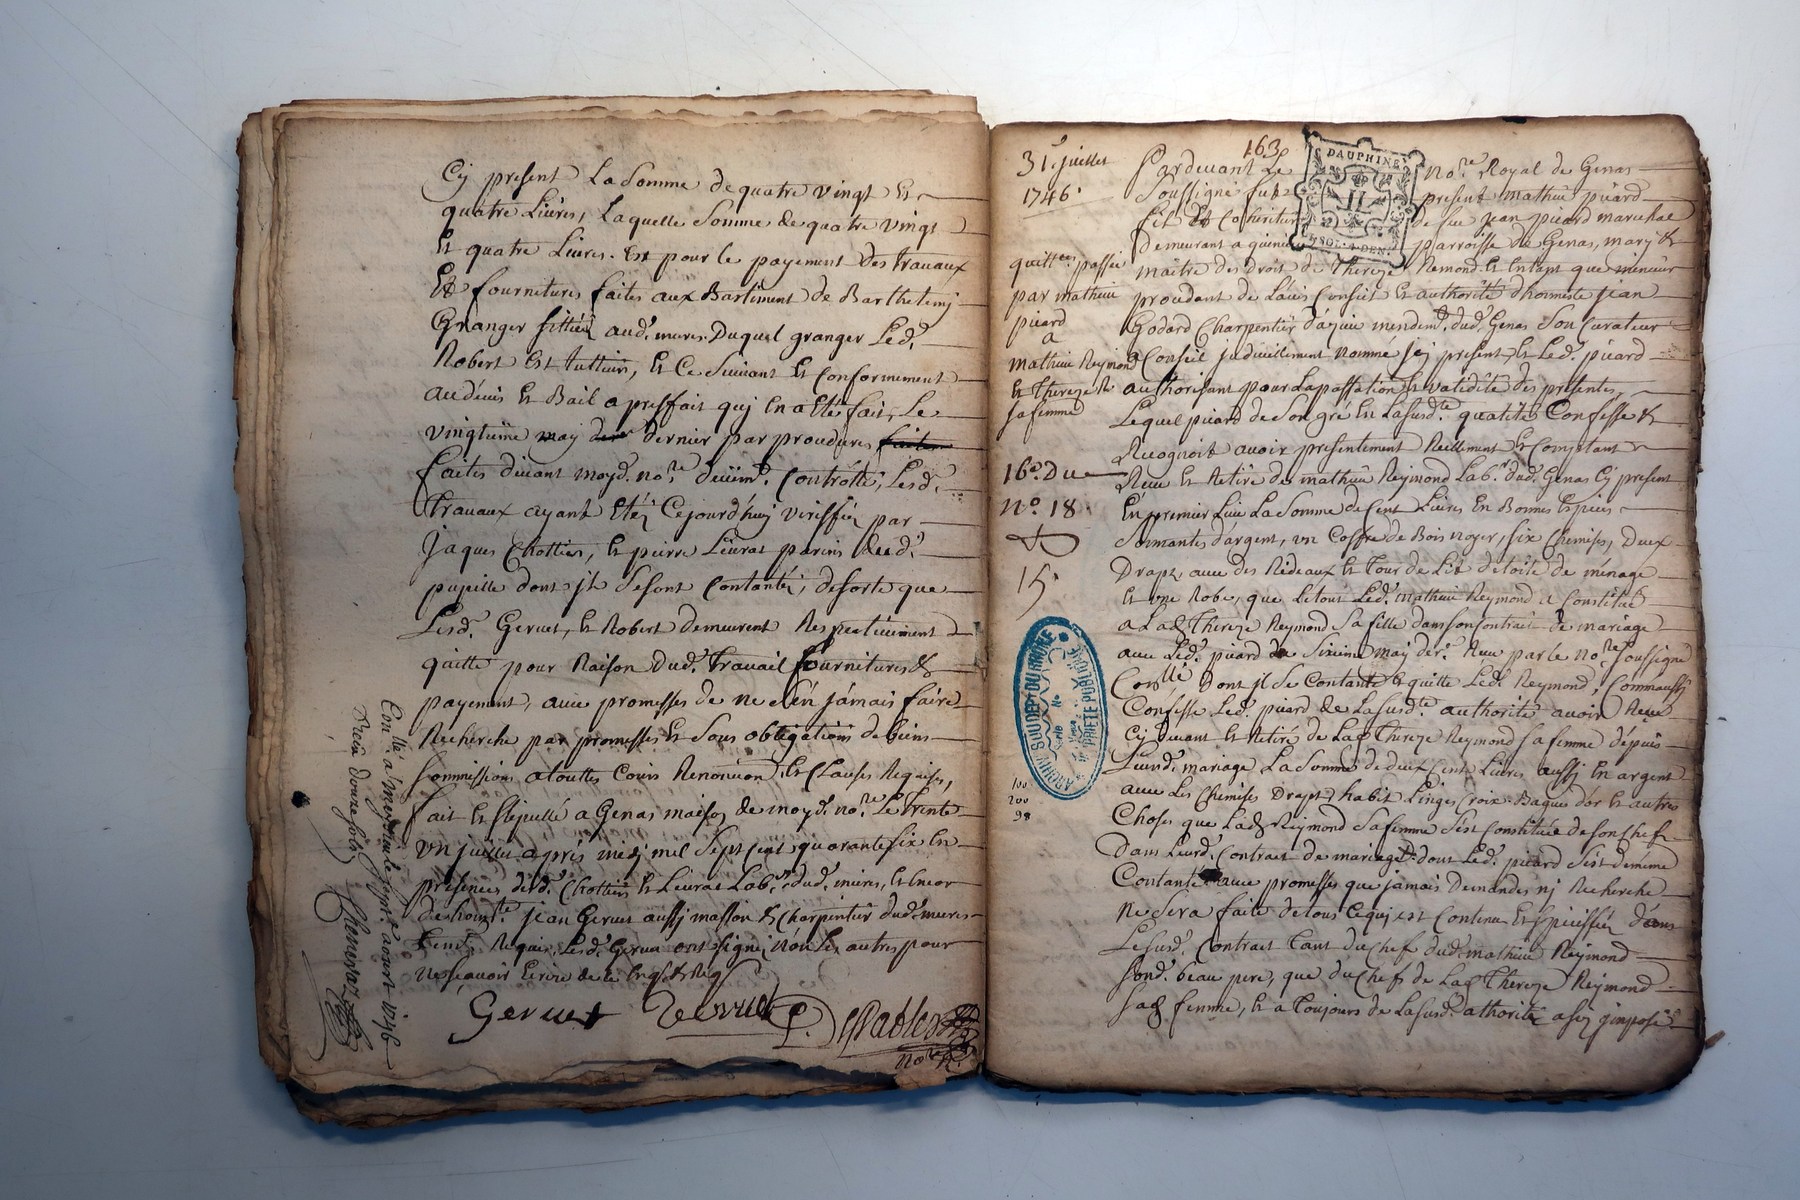 Cy present La Somme de quatre vingt Et
quatre Livres, Laquelle Somme de quatre vingt
Et quatre Livres. Est pour le payement des travaux
Et fournitures faites aux Bastiment de Barthelemy
Granger aud. mures. Duquel granger Led.
Robert Est tutteur, Et Ce Suivant Et Conformement
au dévis Et Bail a presfait quj En a Eté fait, Le
vingtieme may dernier par procedures
faites devant moyd. nore. Controllé, Lesd.
travaux ayant Etéz Cejourd'huy veriffiéz par
Jaques Chollier, Et pierre Lievrat parens dud.
pupille dont jls Sesont Contantéz, desorte que
Lesd. Gervet, Et Robert demeurent Respectivement
quitte pour Raison dud. travail fournitures &
payement, avec promesses de ne s'en jámais faire
Recherche par promesses Et Sous obligations de biens
Sommissions atouttes Cours Renon͠on Et Clauses Requises,
fait Et stipullé a Genas maison de moyd. nore. Le trente
un juillet aprés midy mil Sept Cent quarante Six En
presences desd. Chollier Et Lievrat Labrs. dud. mures, Et Encor
de honte. jean Gervet aussy masson & Charpentier dud. mures
Requis, Lesd. Gervet ont signé, non Les autres pour
ne scavoir Ecrire de ce Enqs. & Reqs.
Gervet Gervet
nore.
Conllé. a le sept. aoust 1746
Receu douze sols
163
31e. juillet
1746.
quittce. passée
par mathieu
picard
a
mathieu Reymond
Et Thereze R.
sa femme
16e. Due
no. 18
15
100
200
98
DAUPHINE
II
Pardevant Le nore. Royal de Genas
Soussigné fut present mathieu picard
fils Et Coheritier de feu jean picard marechal
Demeurant a parroisse de Genas, mary &
maitre des droits de Thereze Remond Et Entant que mineur
procedant de Lávis Conseil Et authorité d'honneste jean
Godard Charpentier mendemt. dud. Genas Son Curateur
a Conseil judiciellement nommé jcy present, Et Led. picard
authorisant pour La passation Et validité des presentes,
Lequel picard de Son gré En La susdte. qualité Confesse &
Recognoit avoir presentement Reellement Et Comptant
Receu Et Retiré de mathieu Reymond Labr. dud. Genas Cy present
En premier Lieu La Somme de Cent Livres En Bonnes Especes
Sonnantes d'argent, un Coffre de Bois noyer, six Chemises, Deux
Draps, avec des Rideaux Et Tour de Lit d'étoile de ménage
Et une Robe, que letout Led. mathieu Reymond a Constitué
a Lad. Thereze Reymond Sa fille dans son Contrait de mariage
avec Led. picard may der. Receu par le nore. soussigné
Conllé. Dont jl Se Contante Et quitte Led. Reymond, Comm'aussy
Confesse Led. picard de La susdte. authorité avoir Receu
Cy devant Et Retiré de Lad. Thereze Reymond sa femme depuis
Leurd. mariage La Somme de deux Cent Livres aussy En argent
avec Les Chemises Draps, habit Linges Croix Bague d'or Et autres
Choses que Lad. Reymond Sa femme S'est Constituée de son Chef
Dans Leurd. Contrait de mariage, dont Led. picard S'est de même
Contanté avec promesses que jamais Demandes nj Recherche
ne Sera faite de tous Cequj est Contenu Et spéciffiéz dans
Le susd. Contrait tant du Chef dud. mathieu Reymond
Sond. beau pere, que du Chef de Lad. Thereze Reymond
Sad. femme, Et a toujours de La susd. athorité